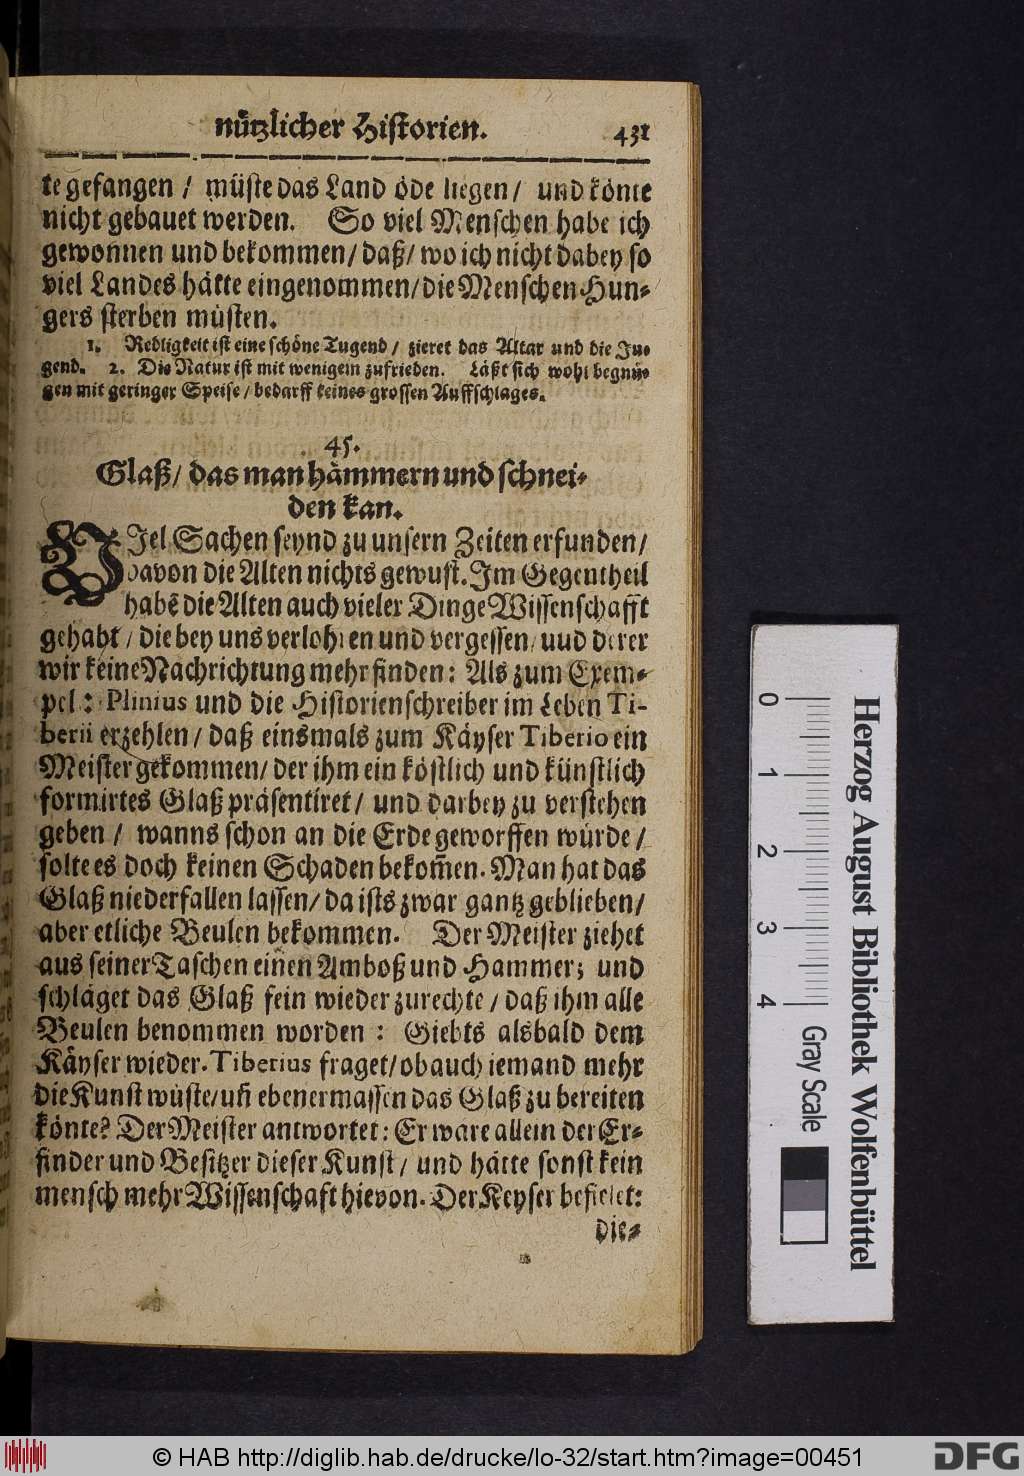 nützlicher Historien. 431
te gefangen / müste das Land öde liegen / und könte
nicht gebauet werden. So viel Menschen habe ich
gewonnen und bekommen / daß / wo ich nicht dabey so
viel Landes hätte eingenommen / die Menschen Hun-
gers sterben müsten.
1. Redligkeit ist eine schöne Tugend / zieret das Altar und die Ju-
gend. 2. Die Natur ist mit wenigem zufrieden. Läßt sich wohl begnü-
gen mit geringer Speise / bedarff keines grossen Auffschlages.
45.
Glaß / das man hämmern und schnei-
den kan.
VJel Sachen seynd zu unsern Zeiten erfunden /
davon die Alten nichts gewust. Im Gegentheil
habē die Alten auch vieler Dinge Wissenschafft
gehabt / die bey uns verlohren und vergessen / uud derer
wir keine Nachrichtung mehr finden: Als zum Exem-
pel: Plinius und die Historienschreiber im Leben Ti-
berii erzehlen / daß einsmals zum Käyser Tiberio ein
Meister gekommen / der ihm ein köstlich und künstlich
formirtes Glaß präsentiret / und darbey zu verstehen
geben / wanns schon an die Erde geworffen würde /
solte es doch keinen Schaden bekom̃en. Man hat das
Glaß niederfallen lassen / da ists zwar gantz geblieben /
aber etliche Beulen bekommen. Der Meister ziehet
aus seiner Taschen einen Amboß und Hammer; und
schläget das Glaß fein wieder zurechte / daß ihm alle
Beulen benommen worden: Giebts alsbald dem
Käyser wieder. Tiberius fraget / ob auch iemand mehr
die Kunst wüste / uñ ebenermassen das Glaß zu bereiten
könte? Der Meister antwortet: Er ware allein der Er-
finder und Besitzer dieser Kunst / und hätte sonst kein
mensch mehr Wissenschaft hievon. Der Keyser befielet:
die-
0 1 2 3 4
Gray Scale
Herzog August Bibliothek Wolfenbüttel
© HAB http://diglib.hab.de/drucke/lo-32/start.htm?image=00451
DFG